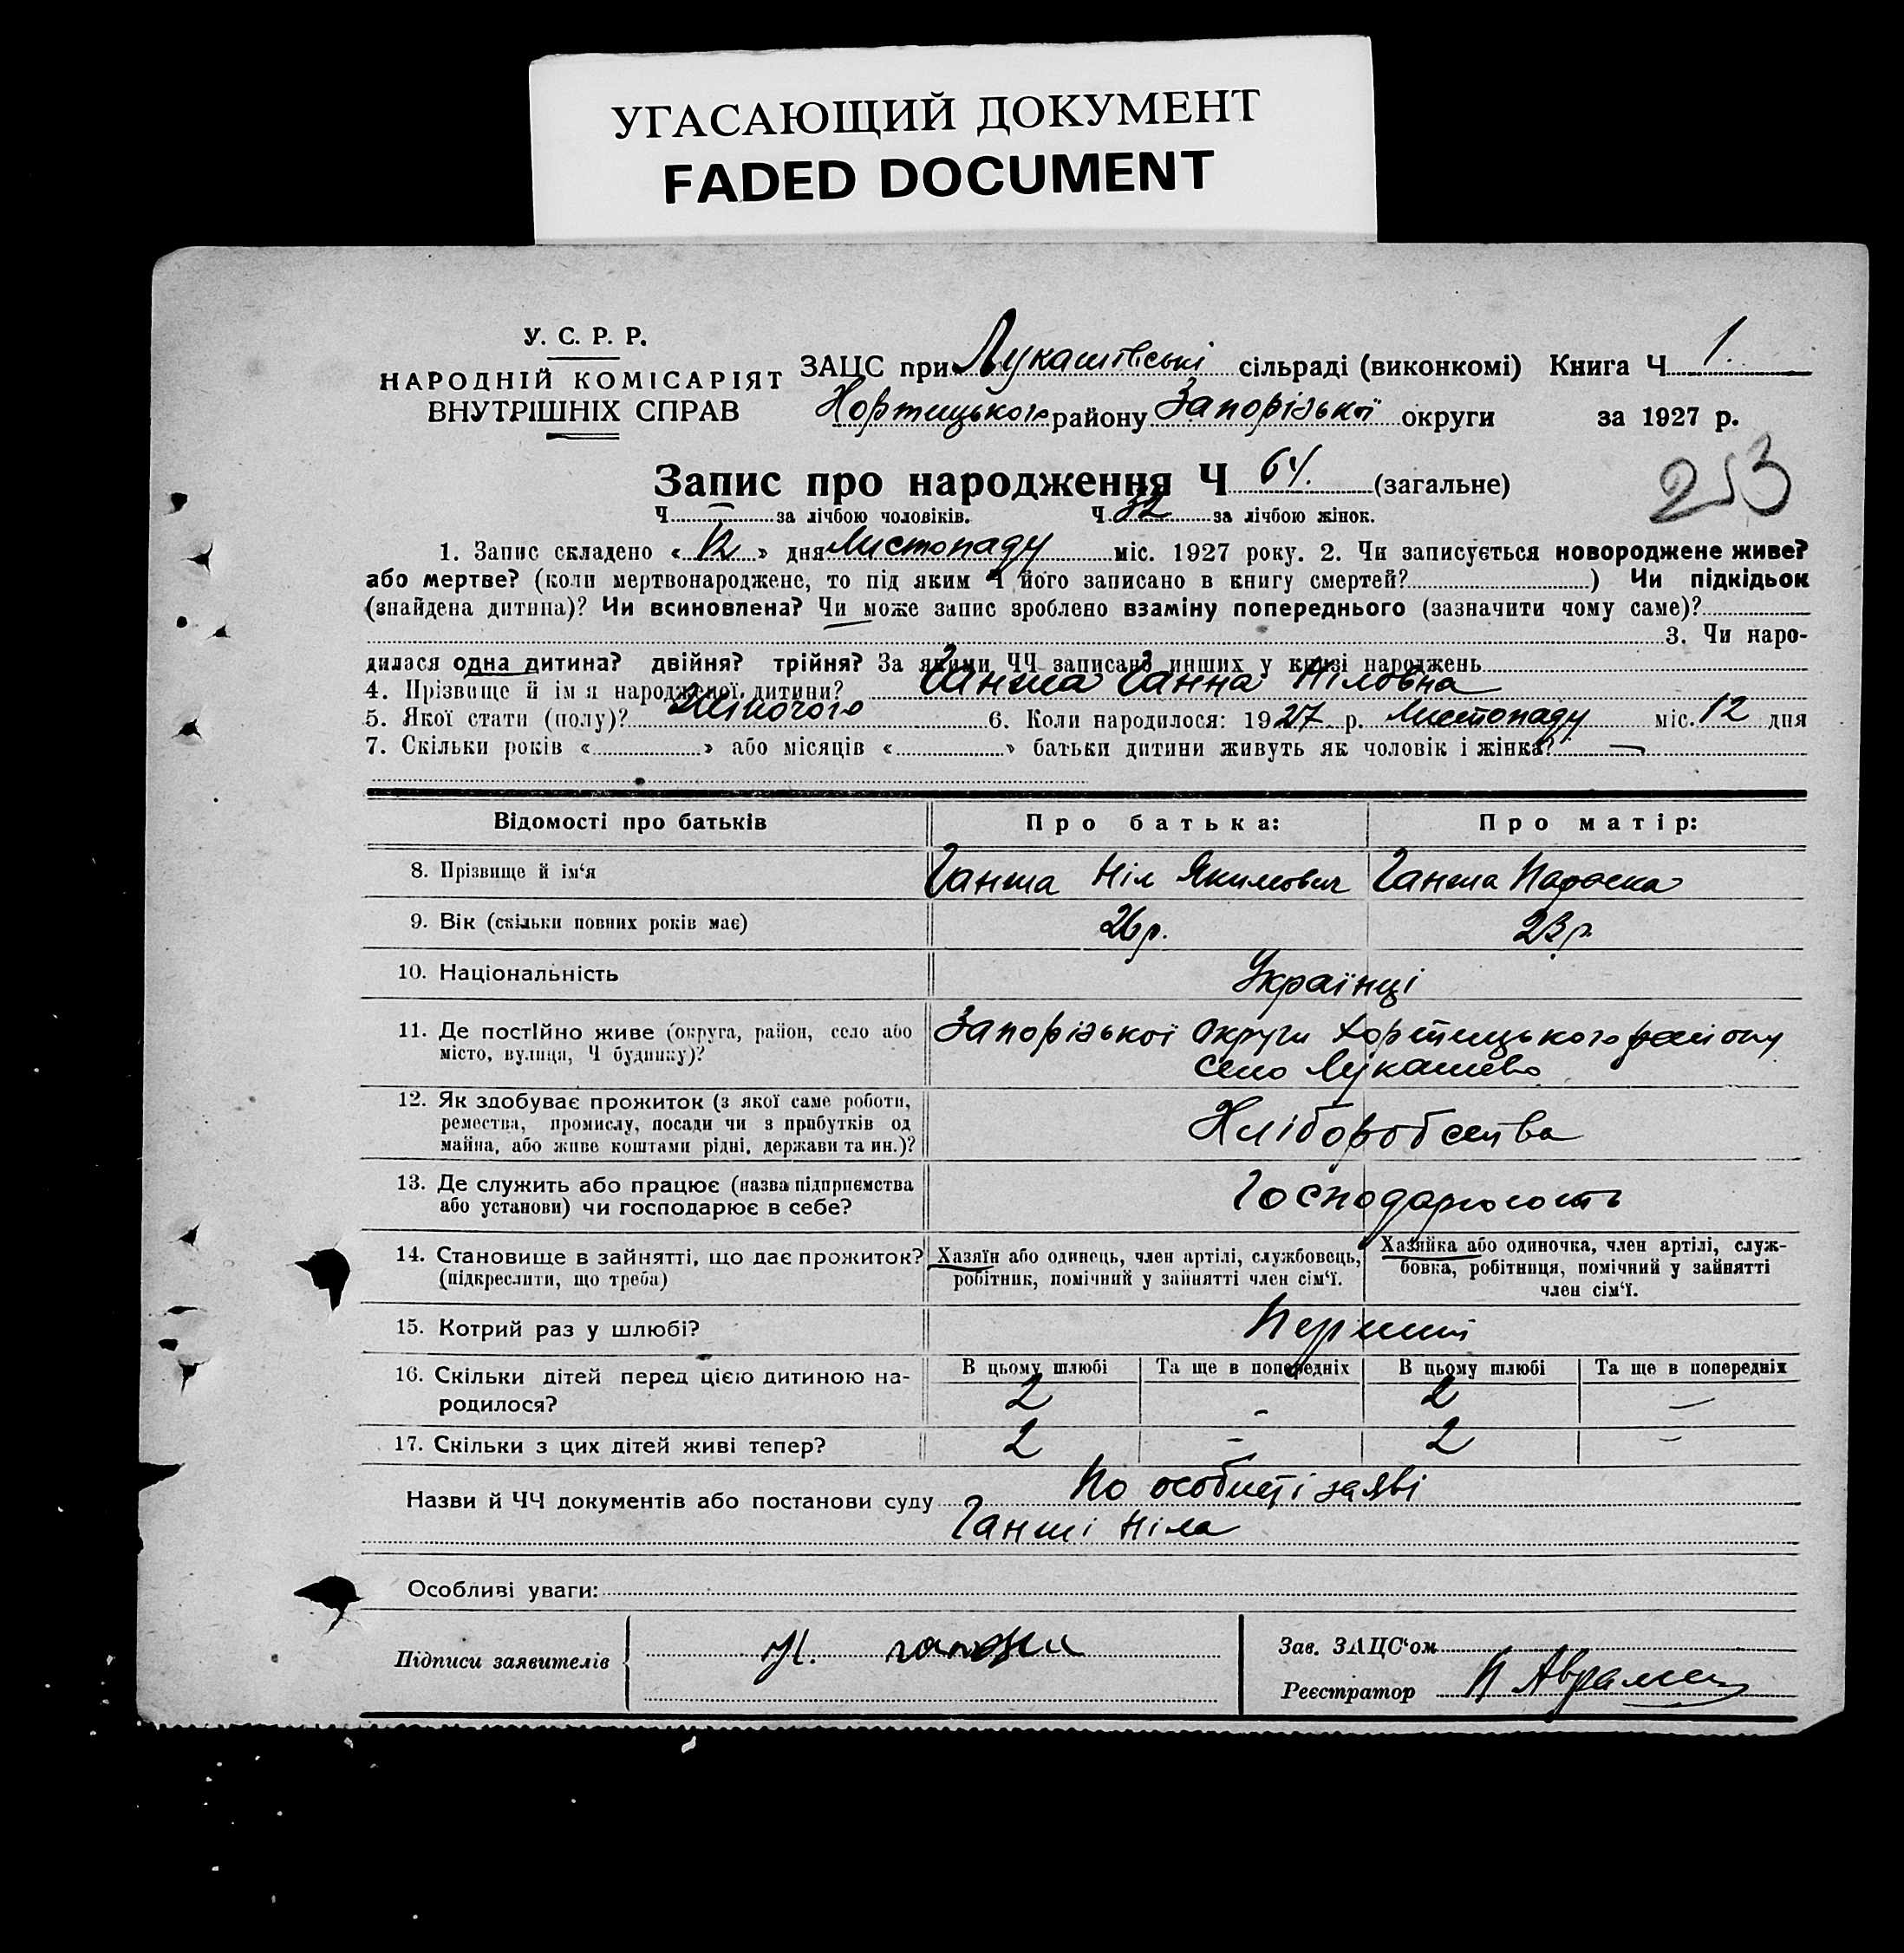 УГАСАЮЩИЙ ДОКУМЕНТ
FADED DOCUMENT
У. С. Р. Р.
НАРОДНІЙ КОМІСАРІЯТ
ВНУТРІШНІХ СПРАВ
ЗАЦС при Лукашівські сільраді (виконкомі) Книга Ч 1.
Хортицького району Запорізької округи за 1927 р.
Запис про народження Ч 64. (загальне)
253
Ч. — за лічбою чоловіків. Ч. 32 за лічбою жінок.
1. Запис складено « 12 » дня Листопаду міс. 1927 року. 2. Чи записується новороджене живе?
або мертве? (коли мертвонароджене, то під яким Ч його записано в книгу смертей? ) Чи підкідьок
(знайдена дитина)? Чи всиновлена? Чи може запис зроблено взаміну попереднього (зазначити чому саме)?
3. Чи наро-
дилася одна дитина? двійня? трійня? За якими ЧЧ записано инших у книзі народжень
4. Прізвище й ім я народженої дитини? Ганжа Ганна Ніловна
5. Якої стати (полу)? Жіночого 6. Коли народилося: 1927 р. Листопаду міс. 12 дня
7. Скільки років « » або місяців « » батьки дитини живуть як чоловік і жінка? —
Відомості про батьків Про батька: Про матір:
8. Прізвище й ім‘я Ганжа Ніл Якимович Ганжа Параска
9. Вік (скільки повних років має) 26 р. 23 р.
10. Національність Українці
11. Де постійно живе (округа, район, село або Запорізької Округи Хортицького району
місто, вулиця, Ч будинку)? село Лукашево
12. Як здобуває прожиток (з якої саме роботи,
ремества, промислу, посади чи з прибутків од Хліборобства
майна, або живе коштами рідні, держави та ин.)?
13. Де служить або працює (назва підприємства
або установи) чи господарює в себе? Господарюють
14. Становище в зайнятті, що дає прожиток? Хазяїн або одинець, член артілі, службовець, Хазяйка або одиночка, член артілі, служ-
(підкреслити, що треба) робітник, помічний у зайнятті член сім‘ї. бовка, робітниця, помічний у зайнятті
член сім‘ї.
15. Котрий раз у шлюбі? Перший
16. Скільки дітей перед цією дитиною на- В цьому шлюбі Та ще в попередніх В цьому шлюбі Та ще в попередніх
родилося? 2 - 2 —
17. Скільки з цих дітей живі тепер? 2 - 2 —
Назви й ЧЧ документів або постанови суду По особисті заяві
Ганжі Ніла
Особливі уваги:
Підписи заявителів Н. ганжа Зав. ЗАЦС‘ом
Реєстратор